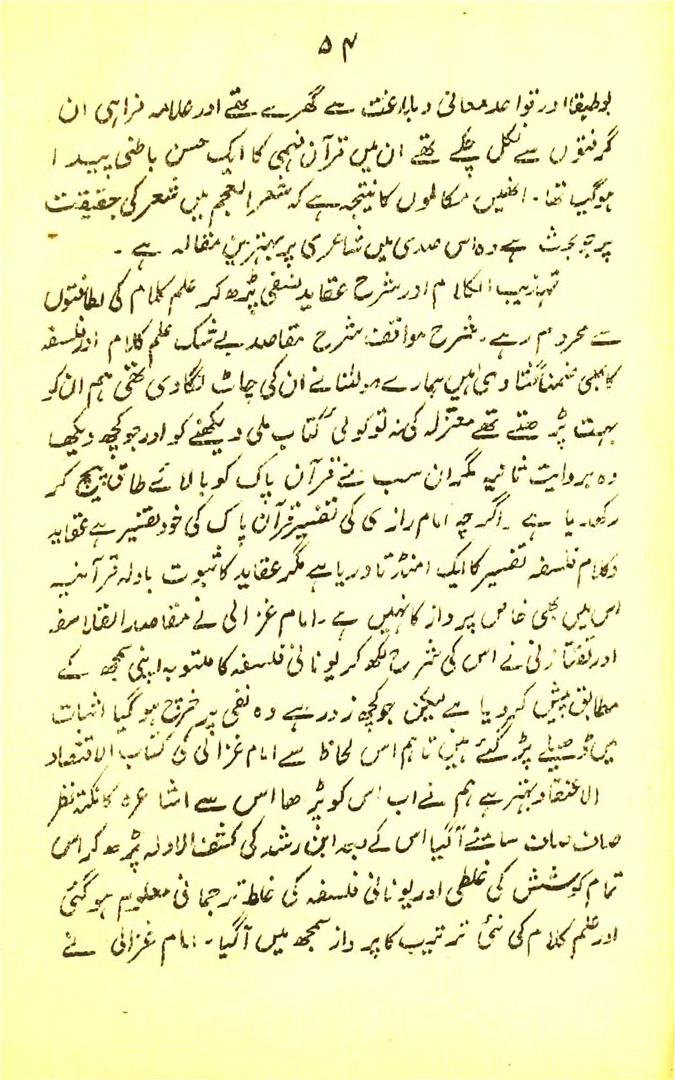 ۵۴
بوطیقا اور قواعد معانی و بلاغت سے گھرے تھے اور علامہ فراہی ان
گرفتوں سے نکل چلے تھے ان میں قرآن فہمی کا ایک حسن باطنی پیدا
ہوگیا تھا۔ انھیں مکالموں کا نتیجہ ہے کہ شعرالعجم میں شعر کی حقیقت
پر جو بحث ہے وہ اس صدی میں شاعری پر بہترین مقالہ ہے ۔
تہذیب الکلام اور شرح عقاید نسفی پڑھ کر علم کلام کی لطافتوں
سے محروم رہے۔ شرح مواقف شرح مقاصد بے شک علم کلام اور فلسفہ
کا بھی ضمناً ہیں ہمارے مولٰنا نے ان کی چاٹ لگادی تھی ہم ان کو
بہت پڑھتے تھے معتزلہ کی نہ تو کوئی کتاب ملی دیکھنے کو اور جو کچھ دیکھا
وہ بروایت ثانیہ مگر ان سب نے قرآن پاک کو بالائے طاق پہنچ کر
رکھدیا ہے ۔ اگرچہ امام رازی کی تفسیر قرآن پاک کی خود تفسیر ہے عقاید
و کلام فلسفہ تفسیر کا ایک امنڈتا دریا ہے مگر عقاید کا ثبوت بادلہ قرآنیہ
اس میں بھی خاص پرداز کا نہیں ہے ۔ امام غزالی نے مقاصد الفلاسفہ
اور تفتازنی نے اس کی شرح لکھ کر یونانی فلسفہ کا ملتوبہ اپنی سمجھ کے
مطابق پیش کردیا ہے لیکن جو کچھ زور ہے وہ نفی پر خرچ ہوگیا اثبات
میں ڈھیلے پڑ گئے ہیں تاہم اس لحاظ سے امام غزالی کی کتاب الاقتصاد
الاعتقاد بہتر ہے ہم نے اب اس کو پڑھا اس سے اشاعرہ کا نکتہ نظر
صاف صاف سامنے آگیا اس کے بعد ابن رشد کی کشف الادلہ پڑھ کر اس
تمام کوشش کی غلطی اور یونانی فلسفہ کی غلط ترجمانی معلوم ہوگئی
اور علم کلام کی نئی ترتیب کا پرداز سمجھ میں آگیا ۔ امام غزالی نے